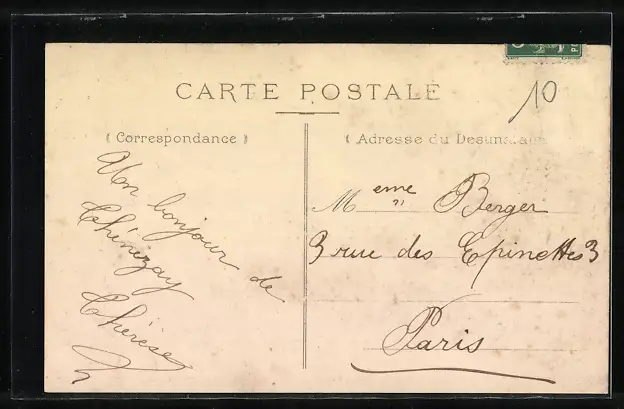 CARTE POSTALE
10
( Correspondance )
( Adresse du Destinataire
Un bonjour de
Thénezay
Thérèse
Meme Berger
3 rue des Epinettes 3
Paris